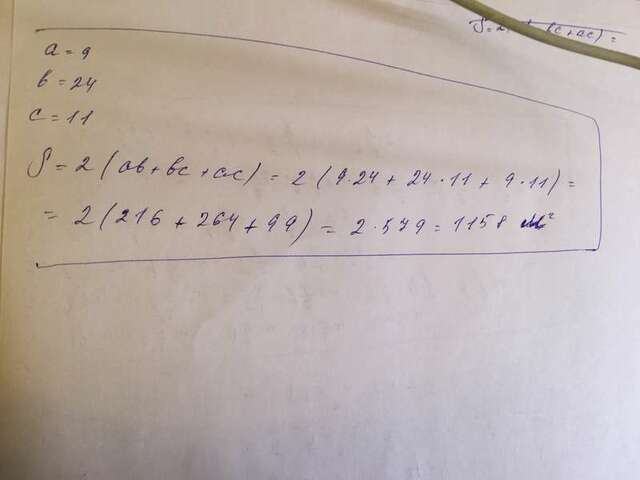 (bc+ac) =
a = 9
b = 24
c = 11
S = 2 (ab + bc + ac) = 2 (9·24 + 24·11 + 9·11) =
= 2 (216 + 264 + 99) = 2·579 = 1158 м²